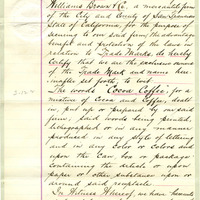 Williams Brown & Co, a mercantile firm
of the City and County of San Francisco
State of California, for the purpose of
securing to our said firm the advantage
benefit and protection of the laws in
relation to Trade Marks do hereby
Certify that we are the exclusive owners
of the Trade Mark and name here-
inafter set forth, to wit
The words "Cocoa Coffee" for a
mixture of Cocoa and Coffee, dealt
in, put up or prepared by our said
firm, said words being printed,
lithographed or in any manner
produced in any style of lettering
and in any Color or Colors and
upon the Can, box or package
containing the article or upon
paper or other substance upon or
around said receptacle.
In Witness Whereof, we have hereunto